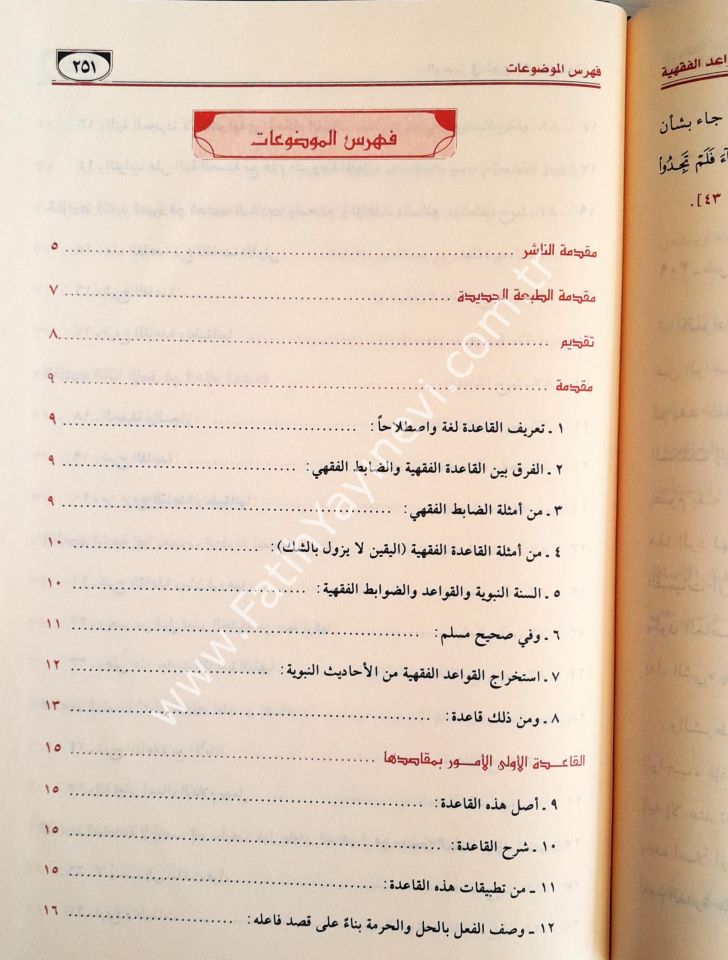 فهرس الموضوعات
٢٥١
فهرس الموضوعات
مقدمة الناشر ٥
مقدمة الطبعة الجديدة ٧
تقديم ٨
مقدمة ٩
١ ـ تعريف القاعدة لغة واصطلاحاً: ٩
٢ ـ الفرق بين القاعدة الفقهية والضابط الفقهي: ٩
٣ ـ من أمثلة الضابط الفقهي: ٩
٤ ـ من أمثلة القاعدة الفقهية (اليقين لا يزول بالشك): ١٠
٥ ـ السنة النبوية والقواعد والضوابط الفقهية: ١٠
٦ ـ وفي صحيح مسلم: ١١
٧ ـ استخراج القواعد الفقهية من الأحاديث النبوية: ١٢
٨ ـ ومن ذلك قاعدة: ١٣
القاعدة الأولى الأمور بمقاصدها ١٥
٩ ـ أصل هذه القاعدة: ١٥
١٠ ـ شرح القاعدة: ١٥
١١ ـ من تطبيقات هذه القاعدة: ١٥
١٢ ـ وصف الفعل بالحل والحرمة بناءً على قصد فاعله: ١٦
الفقهية
جاء بشأن
فَلَمْ تَجِدُوا
٤٣].
www.FatihYayinevi.com.tr